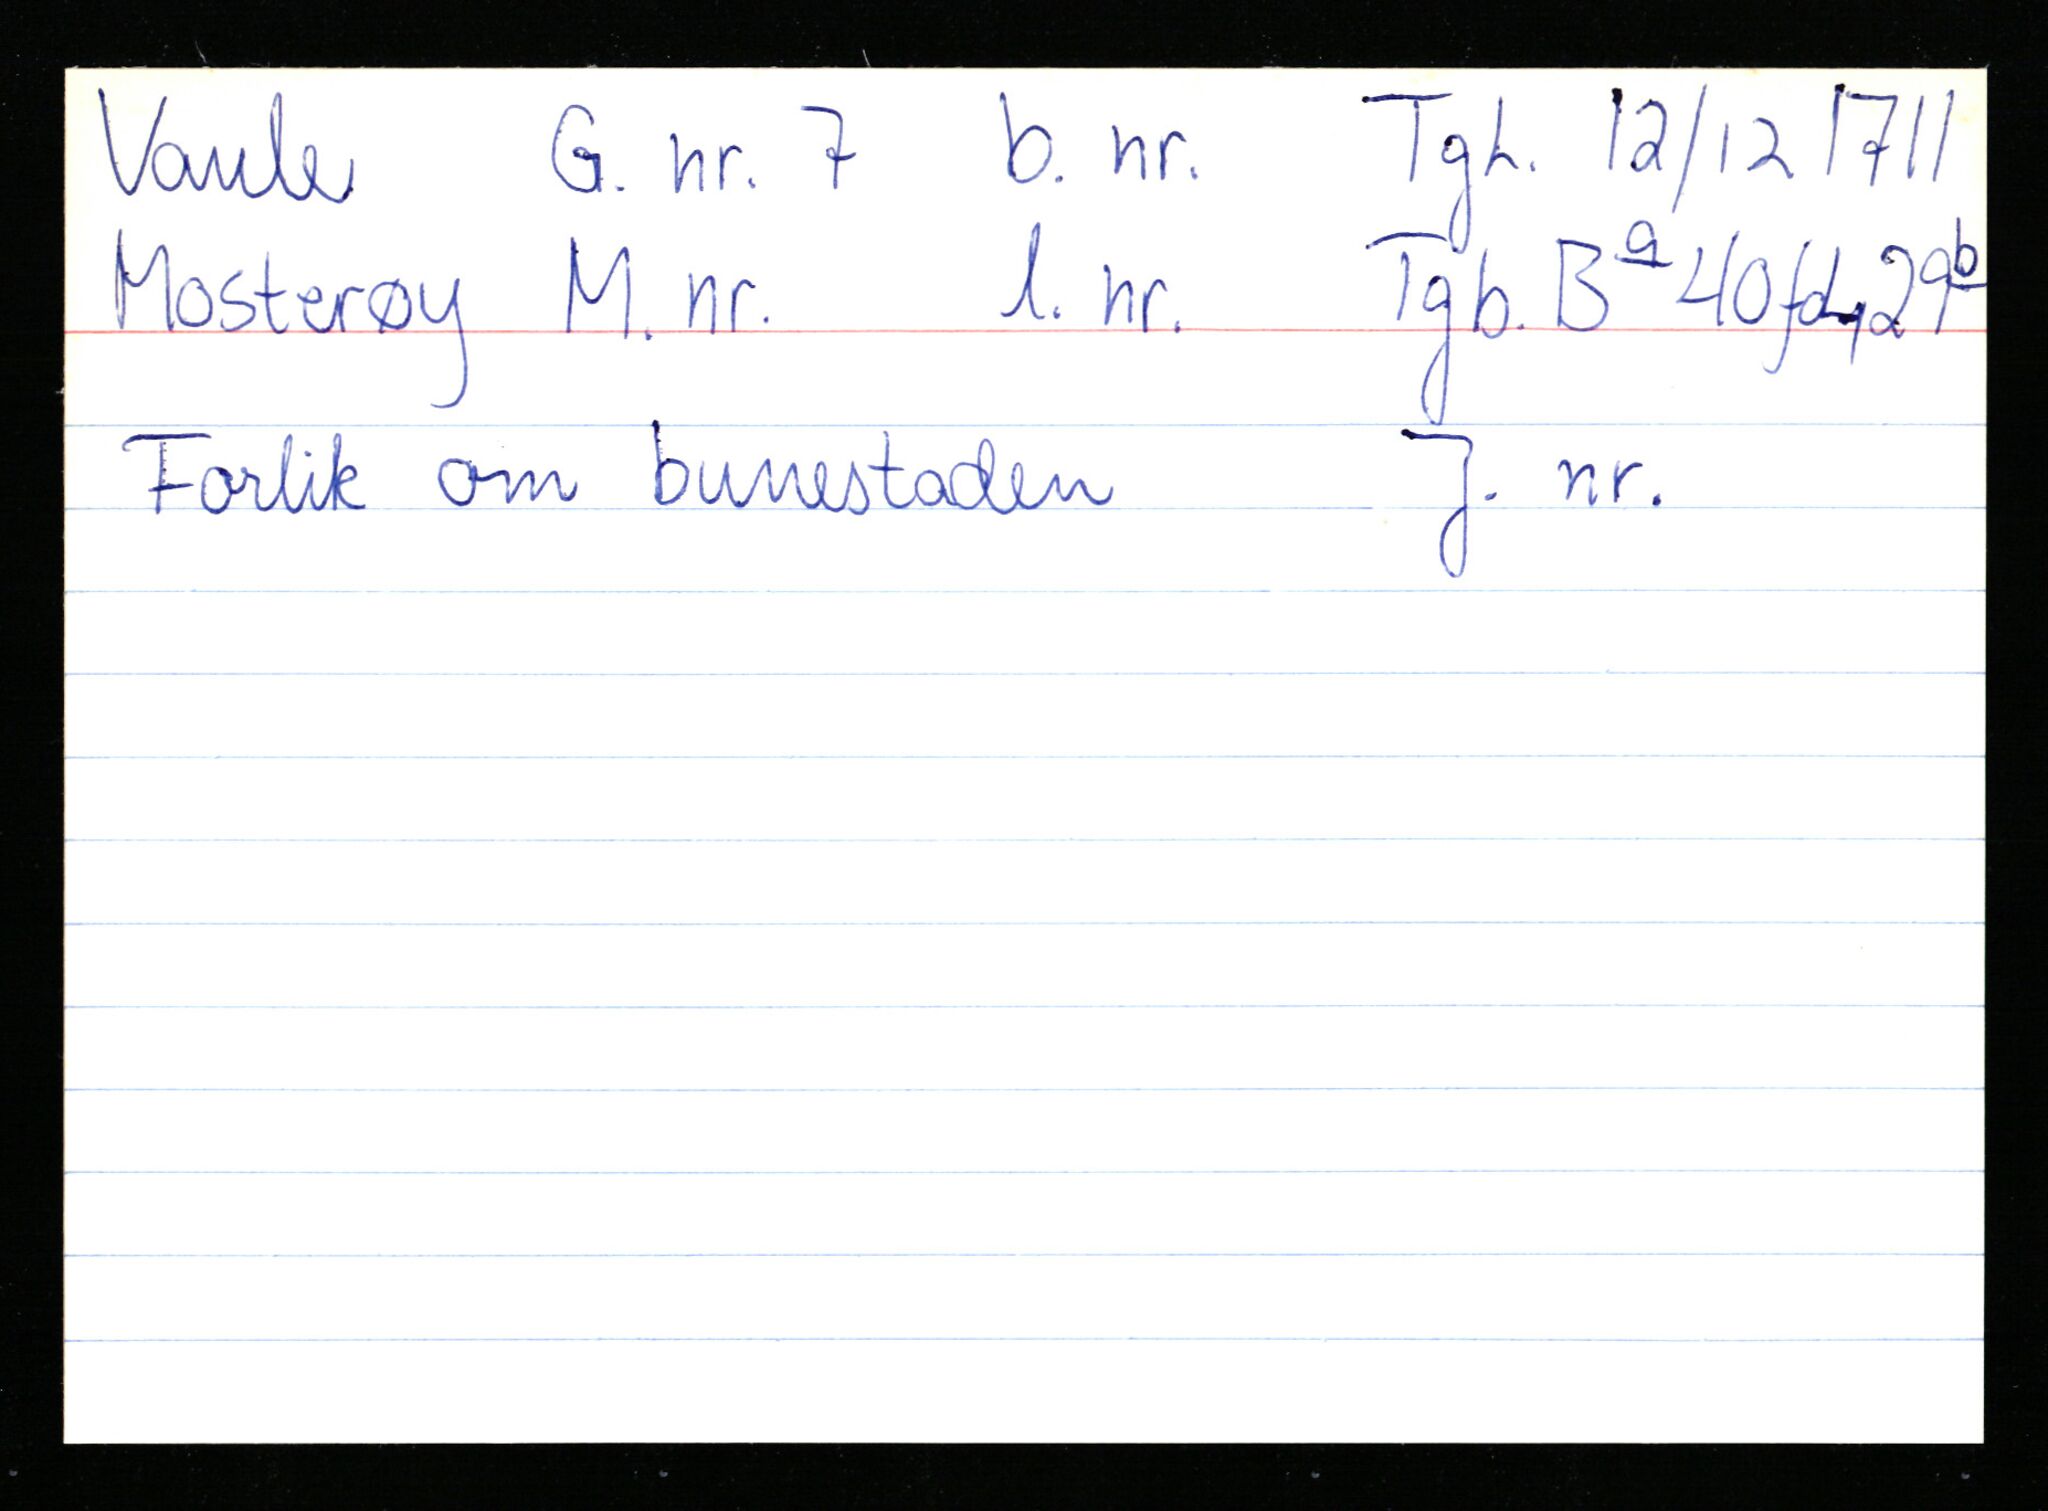 Vaule G. nr. 7 b. nr. Tgh. 12/12 1711
Mosterøy M. nr. l. nr. Tgb. Bª 40 fol, 29b
Forlik om bumestaden J. nr.